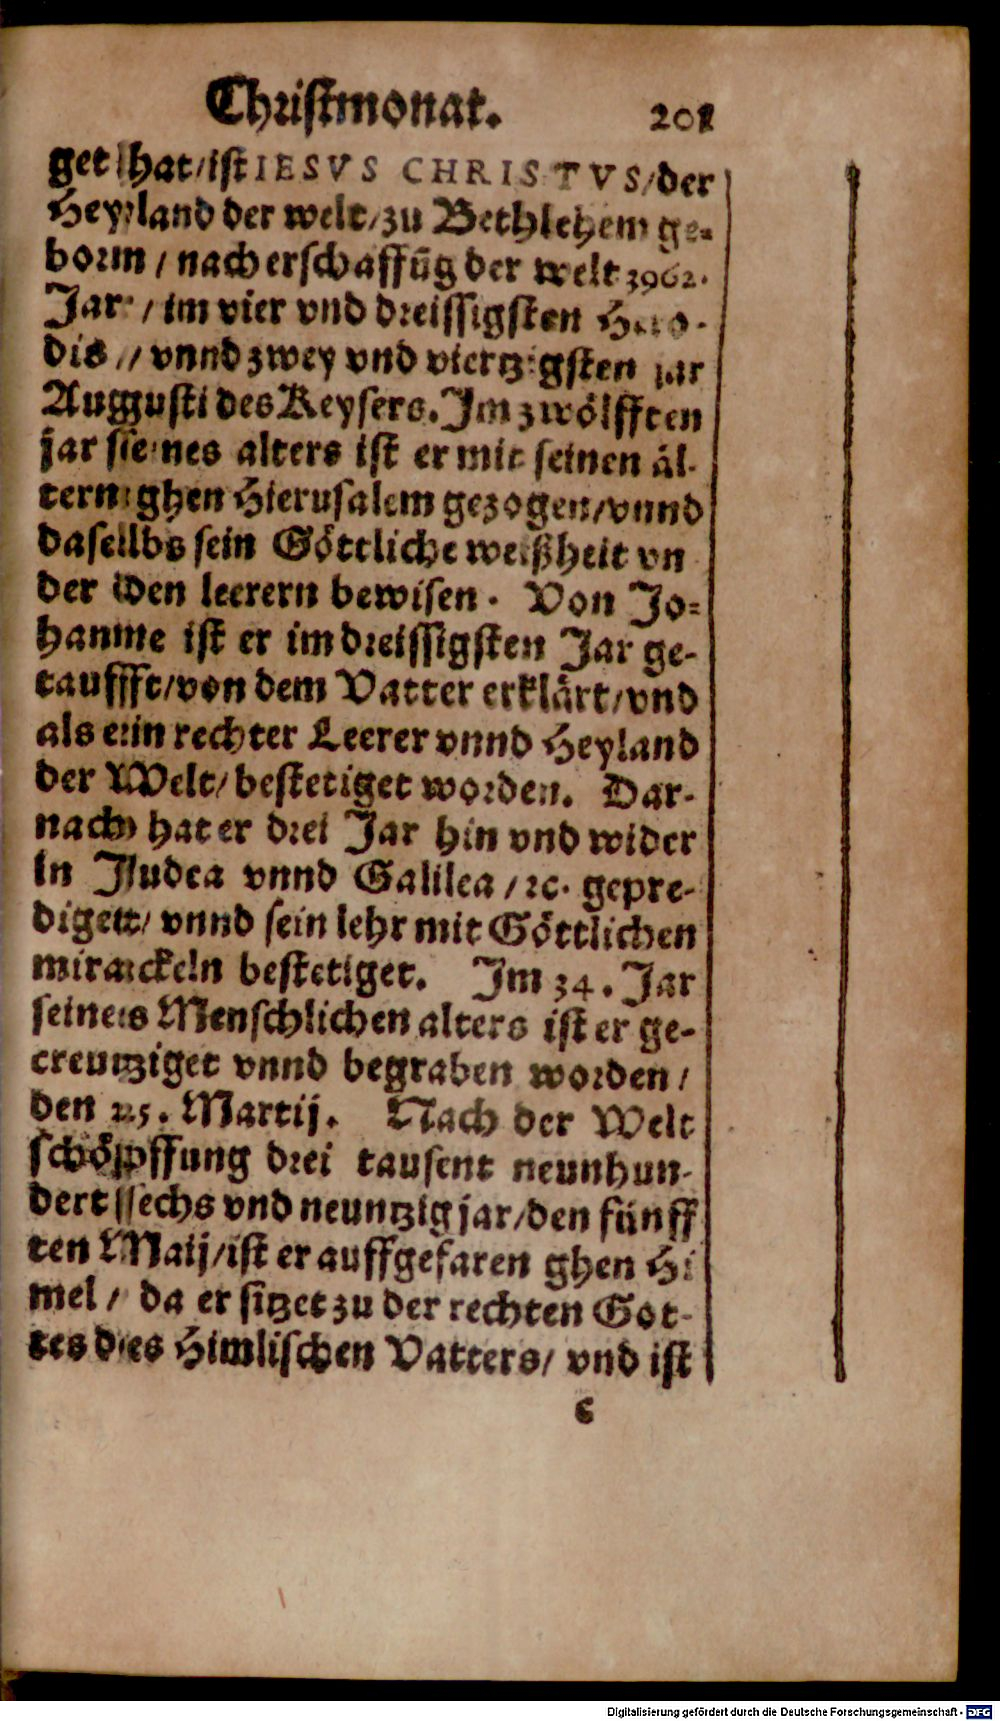 Christmonat. 201
get hat / ist IESVS CHRISTVS / der
Heyland der welt / zu Bethlehem ge-
born / nach erschaffūg der welt 3962.
Jar / im vier vnd dreissigsten Hero-
dis / vnnd zwey vnd viertzigsten jar
Auggusti des Keysers. Im zwölfften
jar seines alters ist er mit seinen äl-
tern ghen Hierusalem gezogen / vnnd
daselbs sein Göttliche weißheit vn
der den leerern bewisen. Von Jo-
hanne ist er im dreissigsten Jar ge-
taufft / von dem Vatter erklärt / vnd
als ein rechter Leerer vnnd Heyland
der Welt / bestetiget worden. Dar-
nach hat er drei Jar hin vnd wider
in Judea vnnd Galilea / ꝛc. gepre-
diget / vnnd sein lehr mit Göttlichen
mirackeln bestetiget. Im 34. Jar
seines Menschlichen alters ist er ge-
creutziget vnnd begraben worden /
den 25. Martij. Nach der Welt
schöpffung drei tausent neunhun-
dert sechs vnd neuntzig jar / den fünff
ten Maij / ist er auffgefaren ghen Hi
mel / da er sitzet zu der rechten Got-
tes des Himlischen Vatters / vnd ist
c
Digitalisierung gefördert durch die Deutsche Forschungsgemeinschaft - DFG